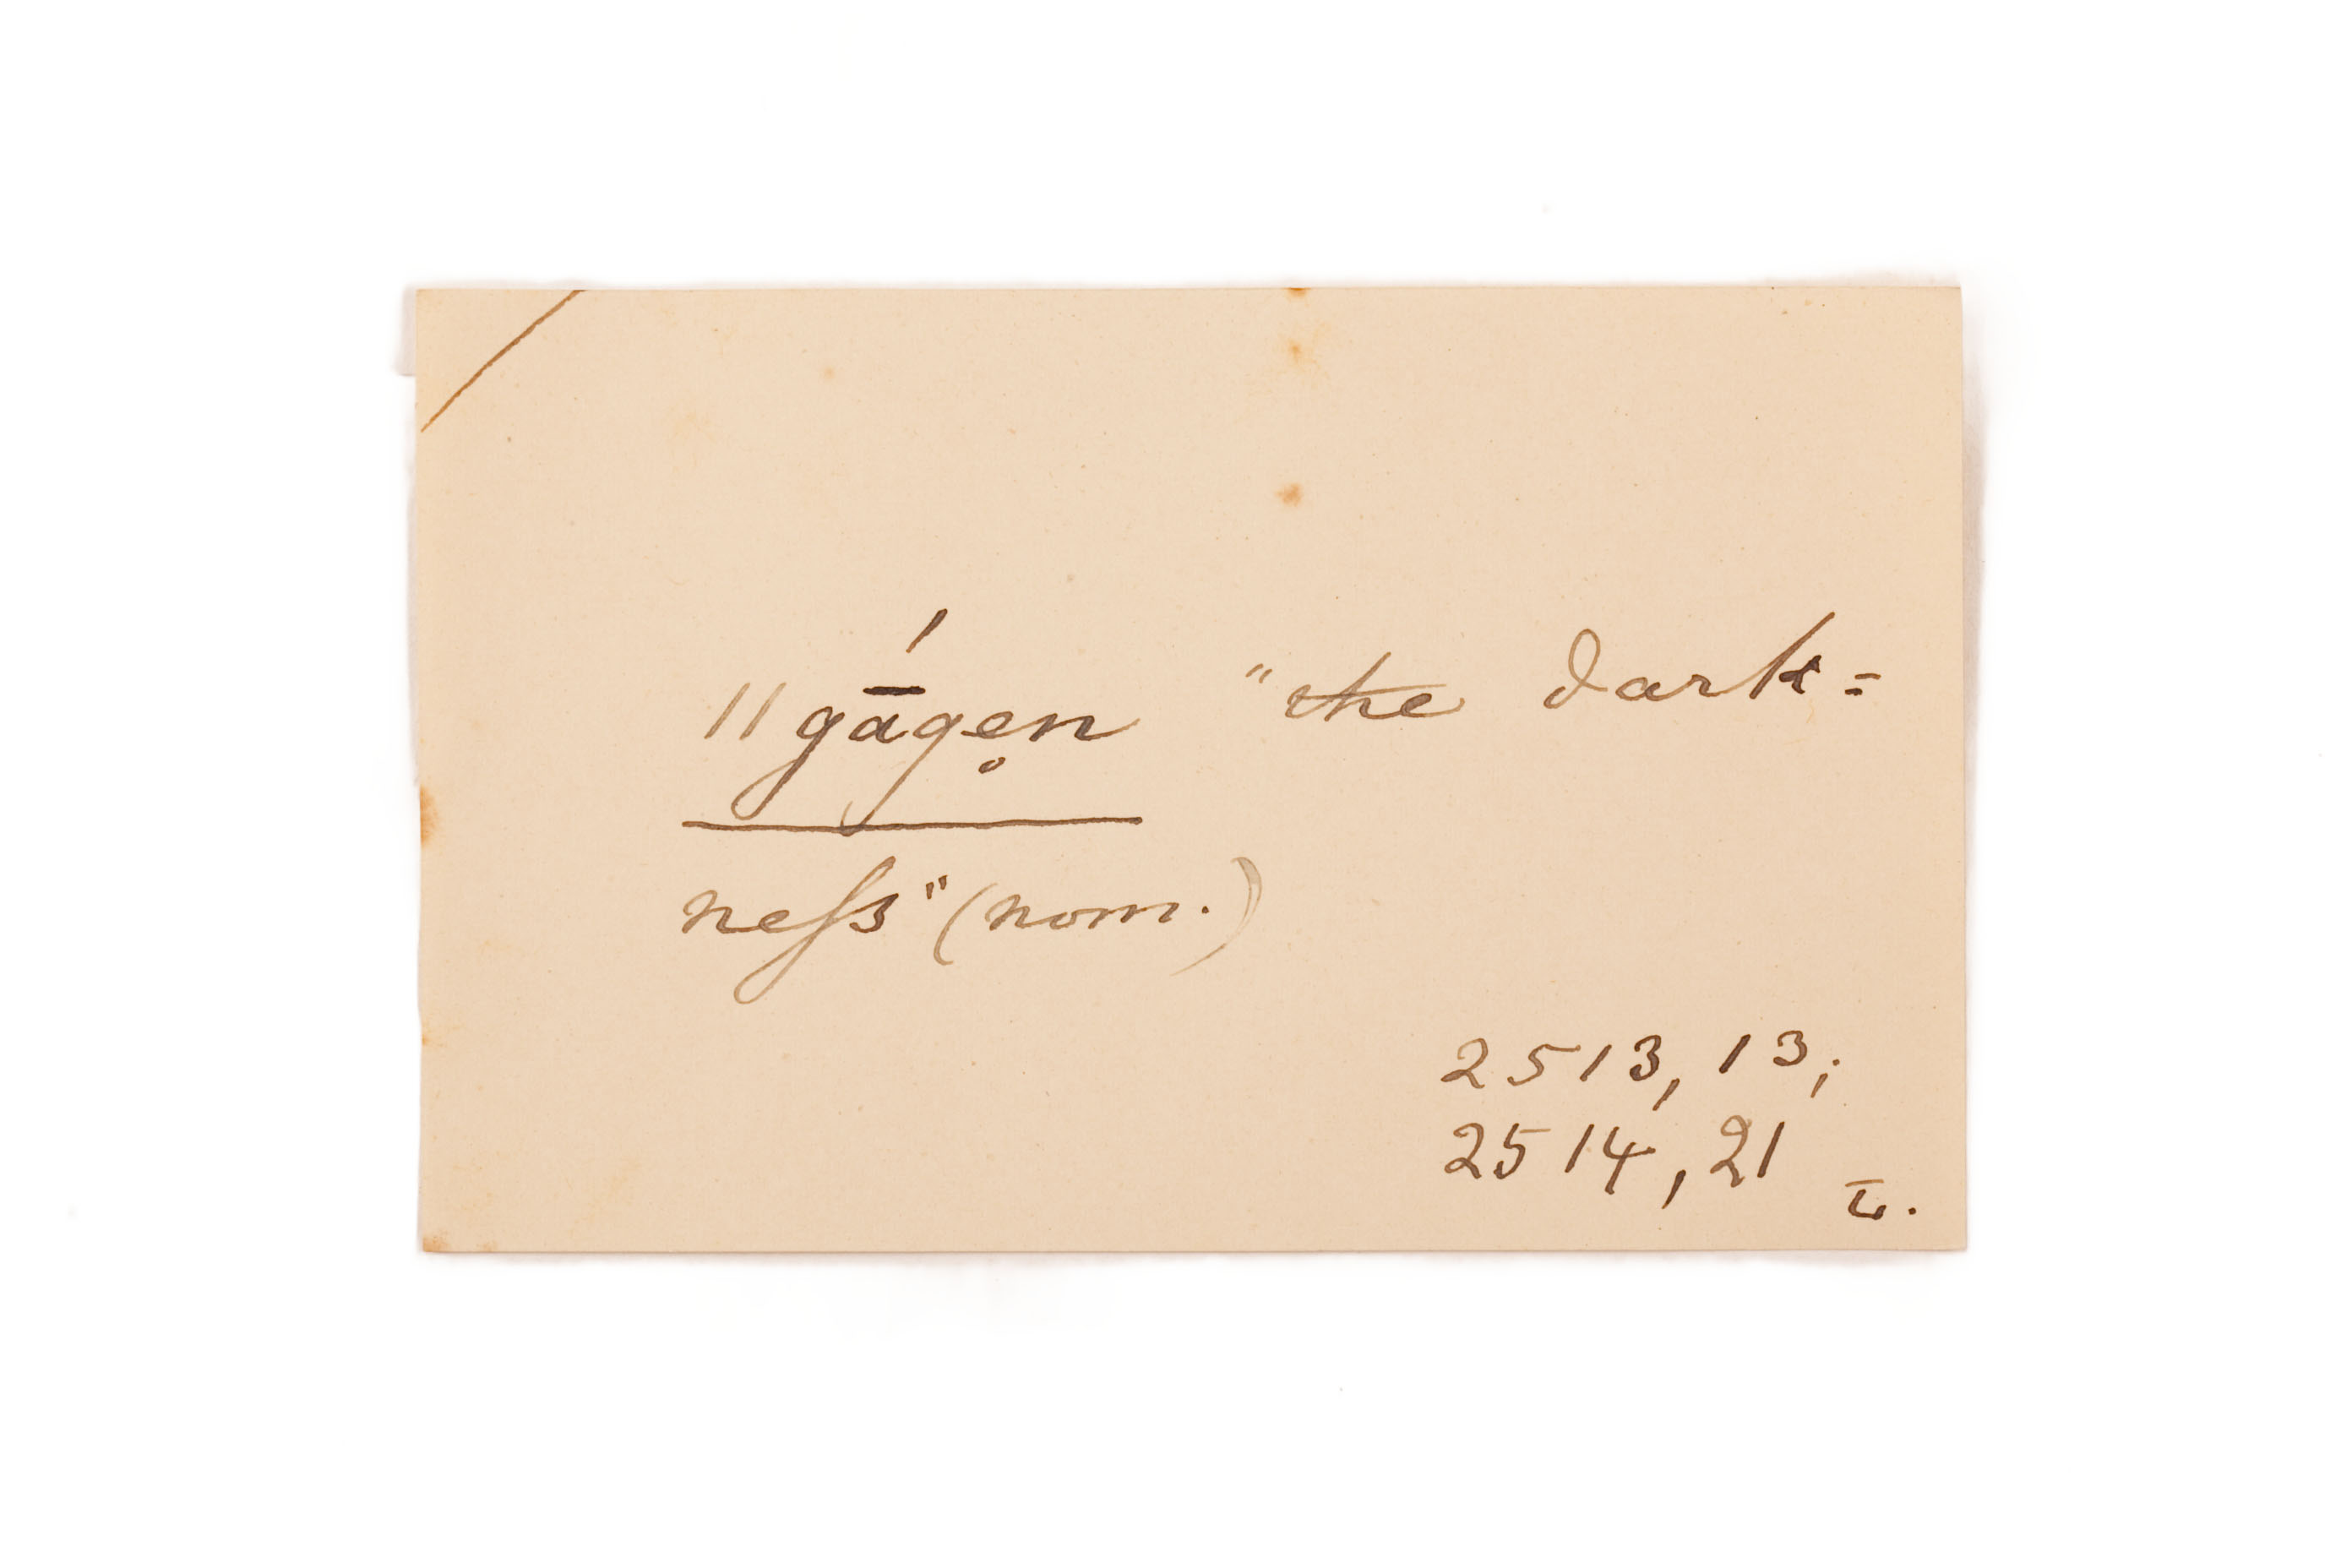 ǁgā́ge̥n "the dark=
ness" (nom.)
2513, 13;
2514, 21
L.